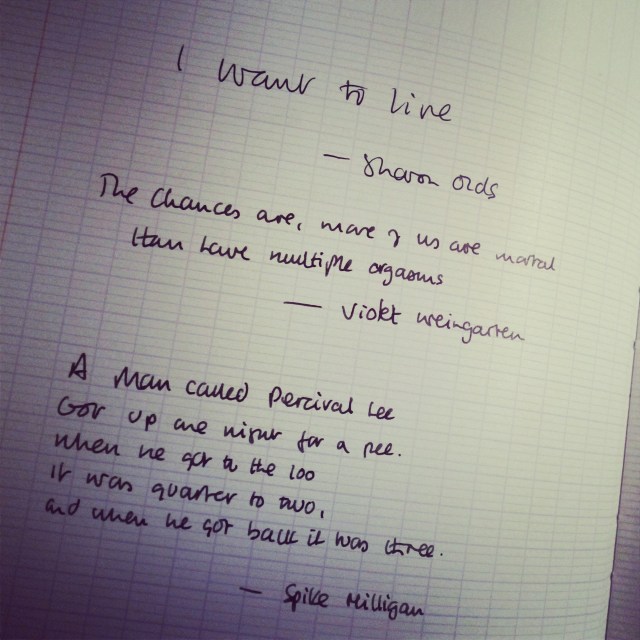 I want to live
— Sharon Olds
The chances are, more of us are mortal
than have multiple orgasms
— Violet Weingarten
A man called Percival Lee
Got up one night for a pee.
When he got to the loo
It was quarter to two,
and when he got back it was three.
— Spike Milligan